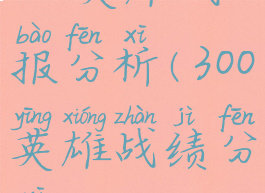 bào fēn xī
报分析(300
yīng xióng zhàn jì fēn
英雄战绩分